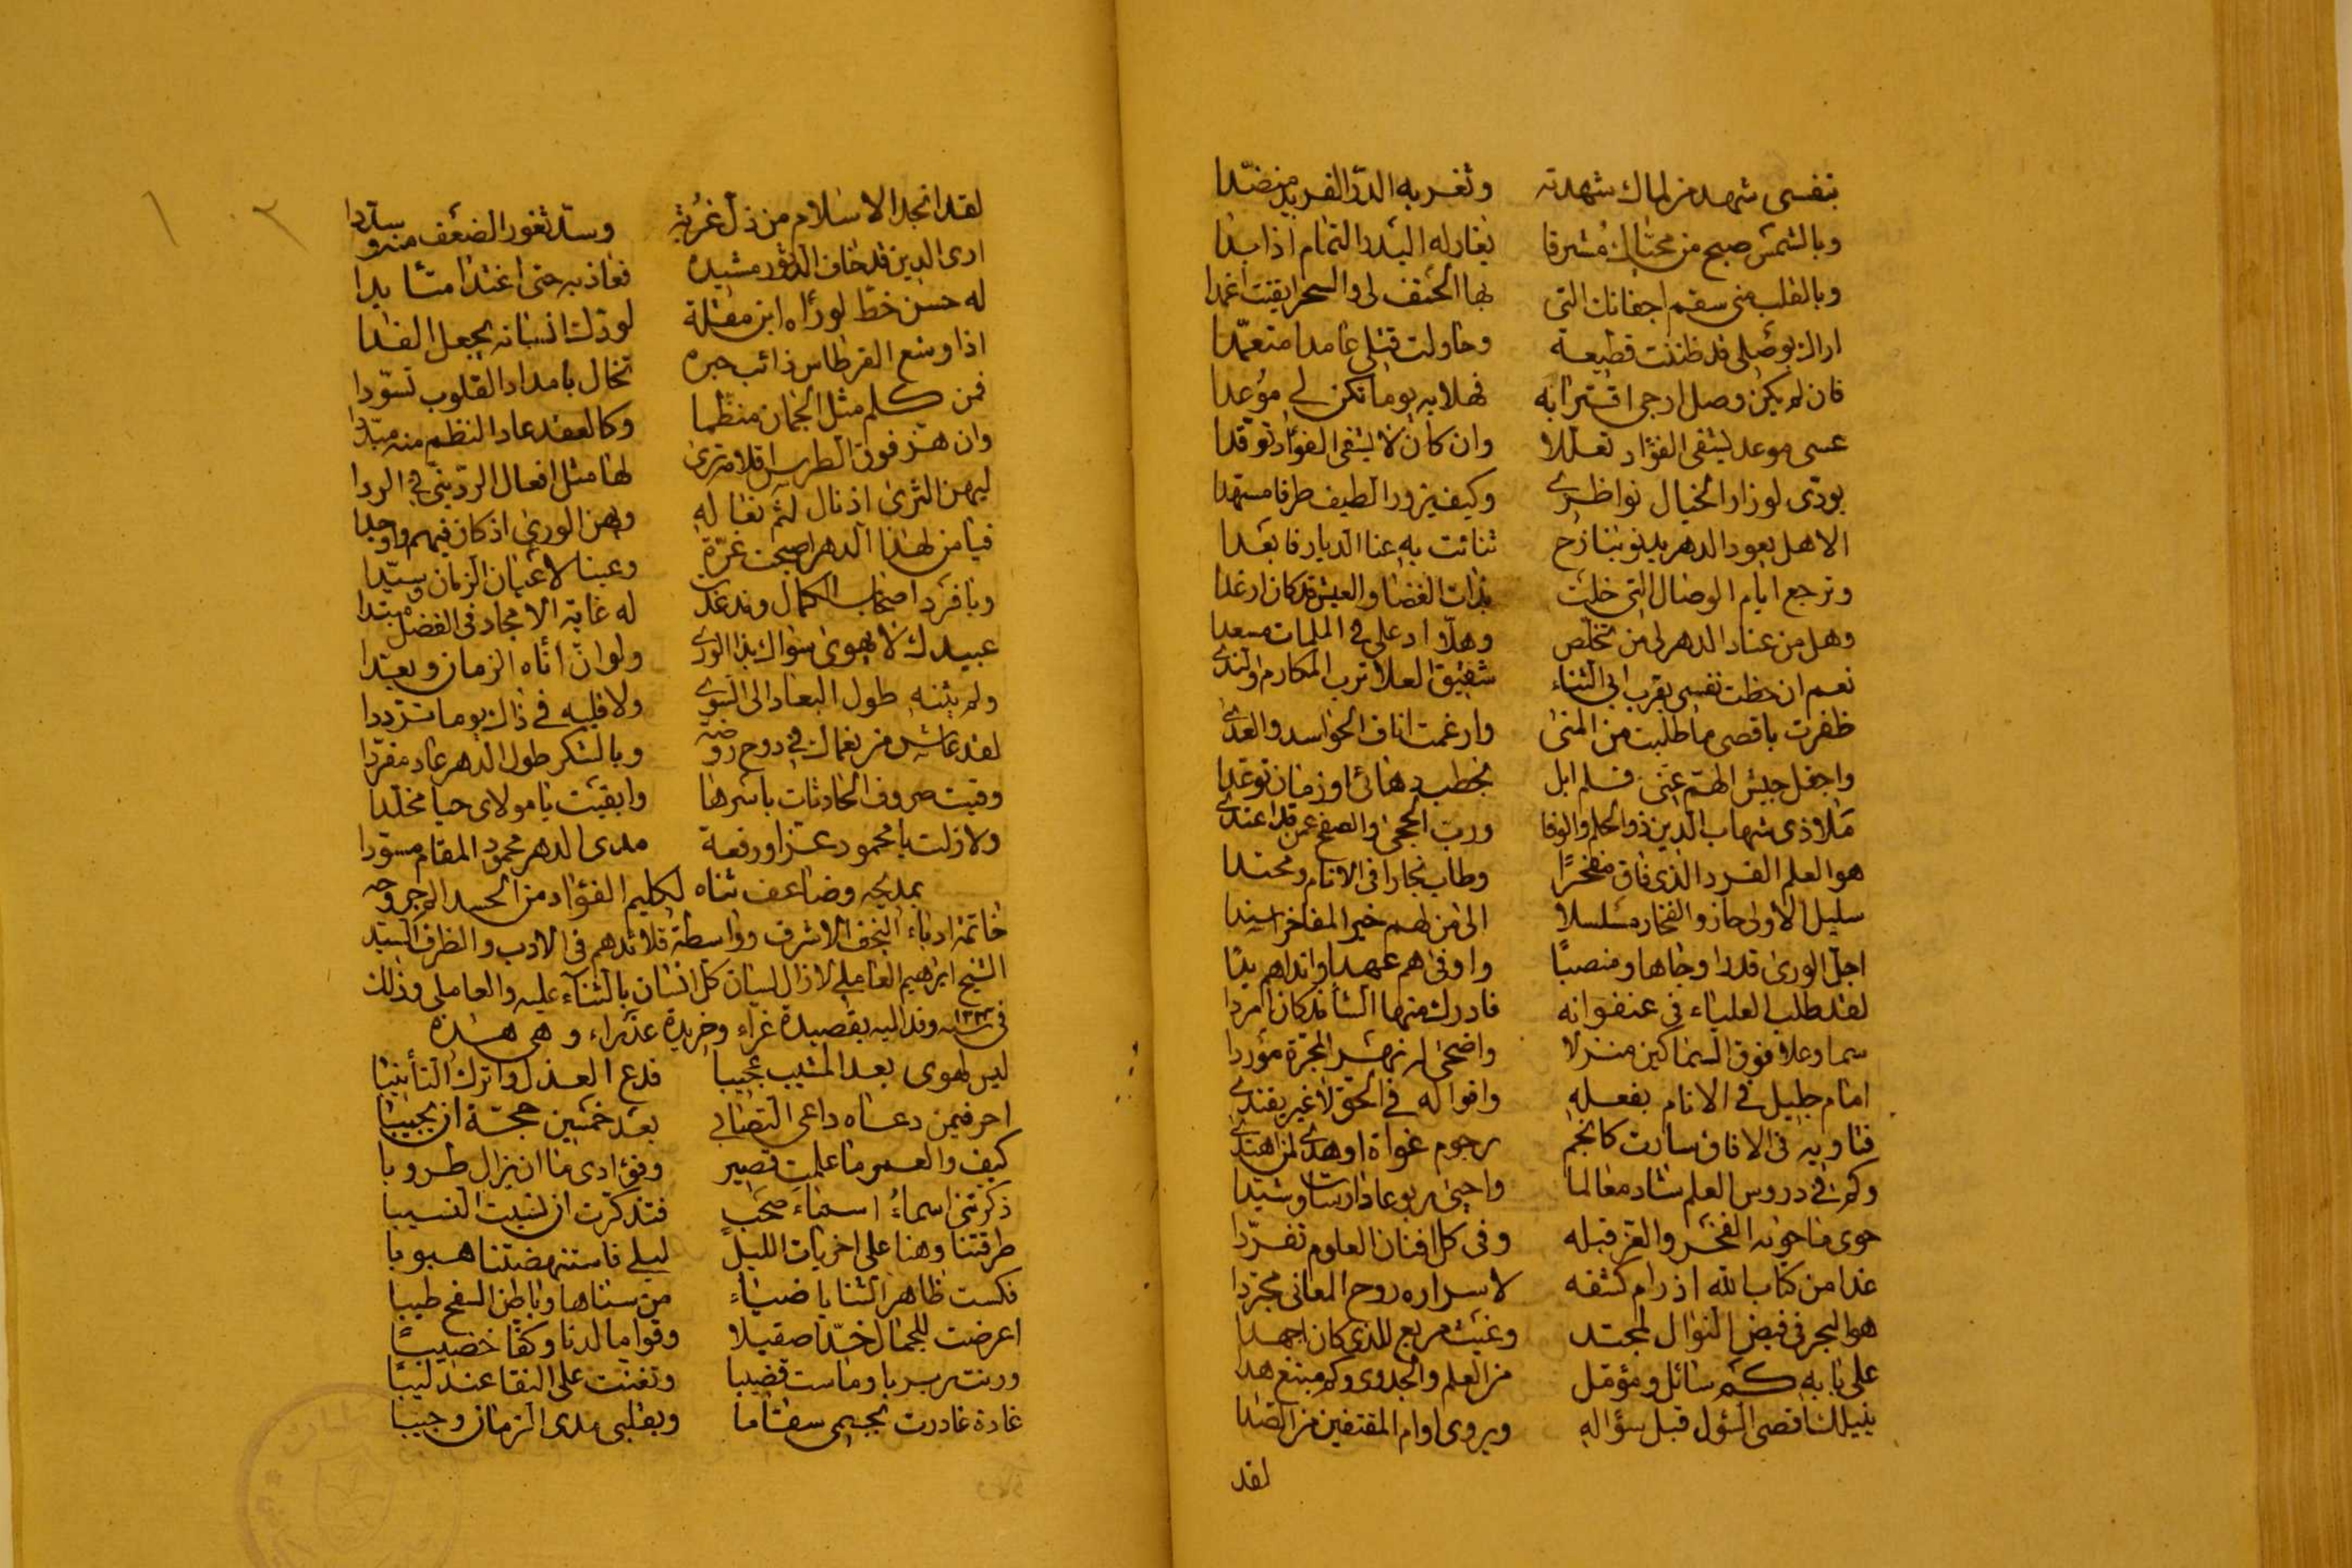 بنفسى شهد من لماك شهدته وثغر به الدر الفريد منضدا
وبالشمس صبح من محياك مشرقا يغار له البدر التمام اذا بدا
وبالقلب منى سقم اجفانك التى بها الحتف لى والسحر ايقنت اغمدا
اراك بوصلى قد ظننت قطيعة وحاولت قتلى عامدا متعمدا
فان لم يكن وصل ارجى اقترابه فهلا به يوما تكن لى موعدا
عسى موعد يشفى الفؤاد تعللا وان كان لا يشفى الفؤاد توقدا
بودى لو زار الخيال نواظرى وكيف يزور الطيف طرفا مسهدا
الا هل يعود الدهر يدنو بنازح تنائت به عنا الديار فابعدا
وترجع ايام الوصال التى خلت بذات الغضا والعيش قد كان ارغدا
وهل من عناد الدهر لى من تخلص وهلا ادعى فى الملمات مسعدا
نعم ان حظت نفسى بقرب ابى الثناء شقيق العلا ترب المكارم والندى
ظفرت باقصى ما طلبت من المنى وارغمت اناف الحواسد والعدى
واجفل جيش الهم عنى فلم ابل بخطب دهانى او زمان توعدا
ملاذى شهاب الدين ذو الحلم والوفا ورب الحجى والصفح عمن قد اعتدى
هو العلم الفرد الذى فاق مفخرا وطاب نجارا فى الانام ومحتدا
سليل الاولى حازوا الفخار مسلسلا الى من لهم خير المفاخر اسندا
اجل الورى قدرا وجاها ومنصبا واوفى هم عهدا وانداهم يدا
لقد طلب العلياء فى عنفوانه فادرك منها الشأ قد كان امردا
سما وعلا فوق السماكين منزلا واضحى له نهر المجرة موردا
امام جليل فى الانام بفعله واقواله فى الحق لا غير يقتدى
فتاويه فى الافاق سارت كانجم رجوم غواة او هدى لمن اهتدى
وكم فى دروس العلم شاد معالما واحيى ربوعا دارسات وشيدا
حوى ما حوته الفخر والعز قبله وفى كل افنان العلوم تفردا
غدا من كتاب الله اذ رام كشفه لاسراره روح المعانى مجردا
هو البحر فى فيض النوال لمجتد وغيث مريع للذى كان اجهدا
على بابه كم سائل ومؤمل من العلم والجدوى وكم مبتغ هدا
ينيلك اقصى السؤل قبل سؤاله ويروى اوام المقتفين من الصدا
لقد
لقد انجد الاسلام من ذل غربة وسد ثغور الضعف منه وسددا
ارى الدين قد خاف الدثور مشيده فعاذ به حتى اغتدا متأيدا
له حسن خط لو رأاه ابن مقلة لود لانسانه يجعل الفدا
اذا وشع القرطاس ذائب حبره تخال بامداد القلوب تسودا
فمن كلم مثل الجمان منظما وكالعقد عاد النظم منه مبددا
وان هز فوق الطرس اقلامه ترى لها مثل افعال الردينى فى الردا
ليهن الثرى اذ نال لثم نعاله وهن الورى اذ كان فيهم واوجدا
فيا من لهذا الدهر اصبحت غرة وعينا لاعيان الزمان وسيدا
ويا فرد اصحاب الكمال وقد غدت له غاية الامجاد فى الفضل مبتدا
عبيدك لا يهوى سواك بذا الورى ولو ان اثاه الزمان وبعدا
ولم يثنه طول البعاد الى السوى ولا قلبه فى ذاك يوما ترددا
لقد عاش من نعماك فى دوح روضة وبالشكر طول الدهر عاد مغردا
وقيت صروف الحادثات باسرها وابقيت يا مولاى حيا مخلدا
ولا زلت يا محمود عزا ورفعة مدى الدهر محمود المقام مسودا
بمديحه وضاعف ثناه لكليم الفؤاد من الحسد الموجر وحه
خاتمة ادباء النجف الاشرف وواسطة قلائدهم فى الادب والظرف السيد
الشيخ ابراهيم العاملى لا زال لسان كل انسان بالثناء عليه والعاملى وذلك
فى سنة وفد اليه بقصيدة غراء وخريدة عذراء وهى هذه
ليس لهوى بعد المشيب عجيبا فدع العذل واترك التأنيبا
احر فيمن دعاه داعى التصابى بعد خمسين حجة ان يجيبا
كيف والعمر ما علمت قصير وفؤادى ما ان يزال طروبا
ذكرتنى اسماءُ اسماءَ صحب فتذكرت ان نسيت النسيبا
طرقتنا وهنا على اخريات الليل ليلى فاستنهضتنا هبوبا
فكست ظاهر الثنايا ضياء من سناها وباطن السفح طيبا
اعرضت للجمال خدا صقيلا وقواما لدنا وكفا خضيبا
ورنت ربربا وماست قضيبا وتغنت على النقا عندليبا
غادة غادرت بجسمى سقاما وبقلبى مدى الزمان وجيبا